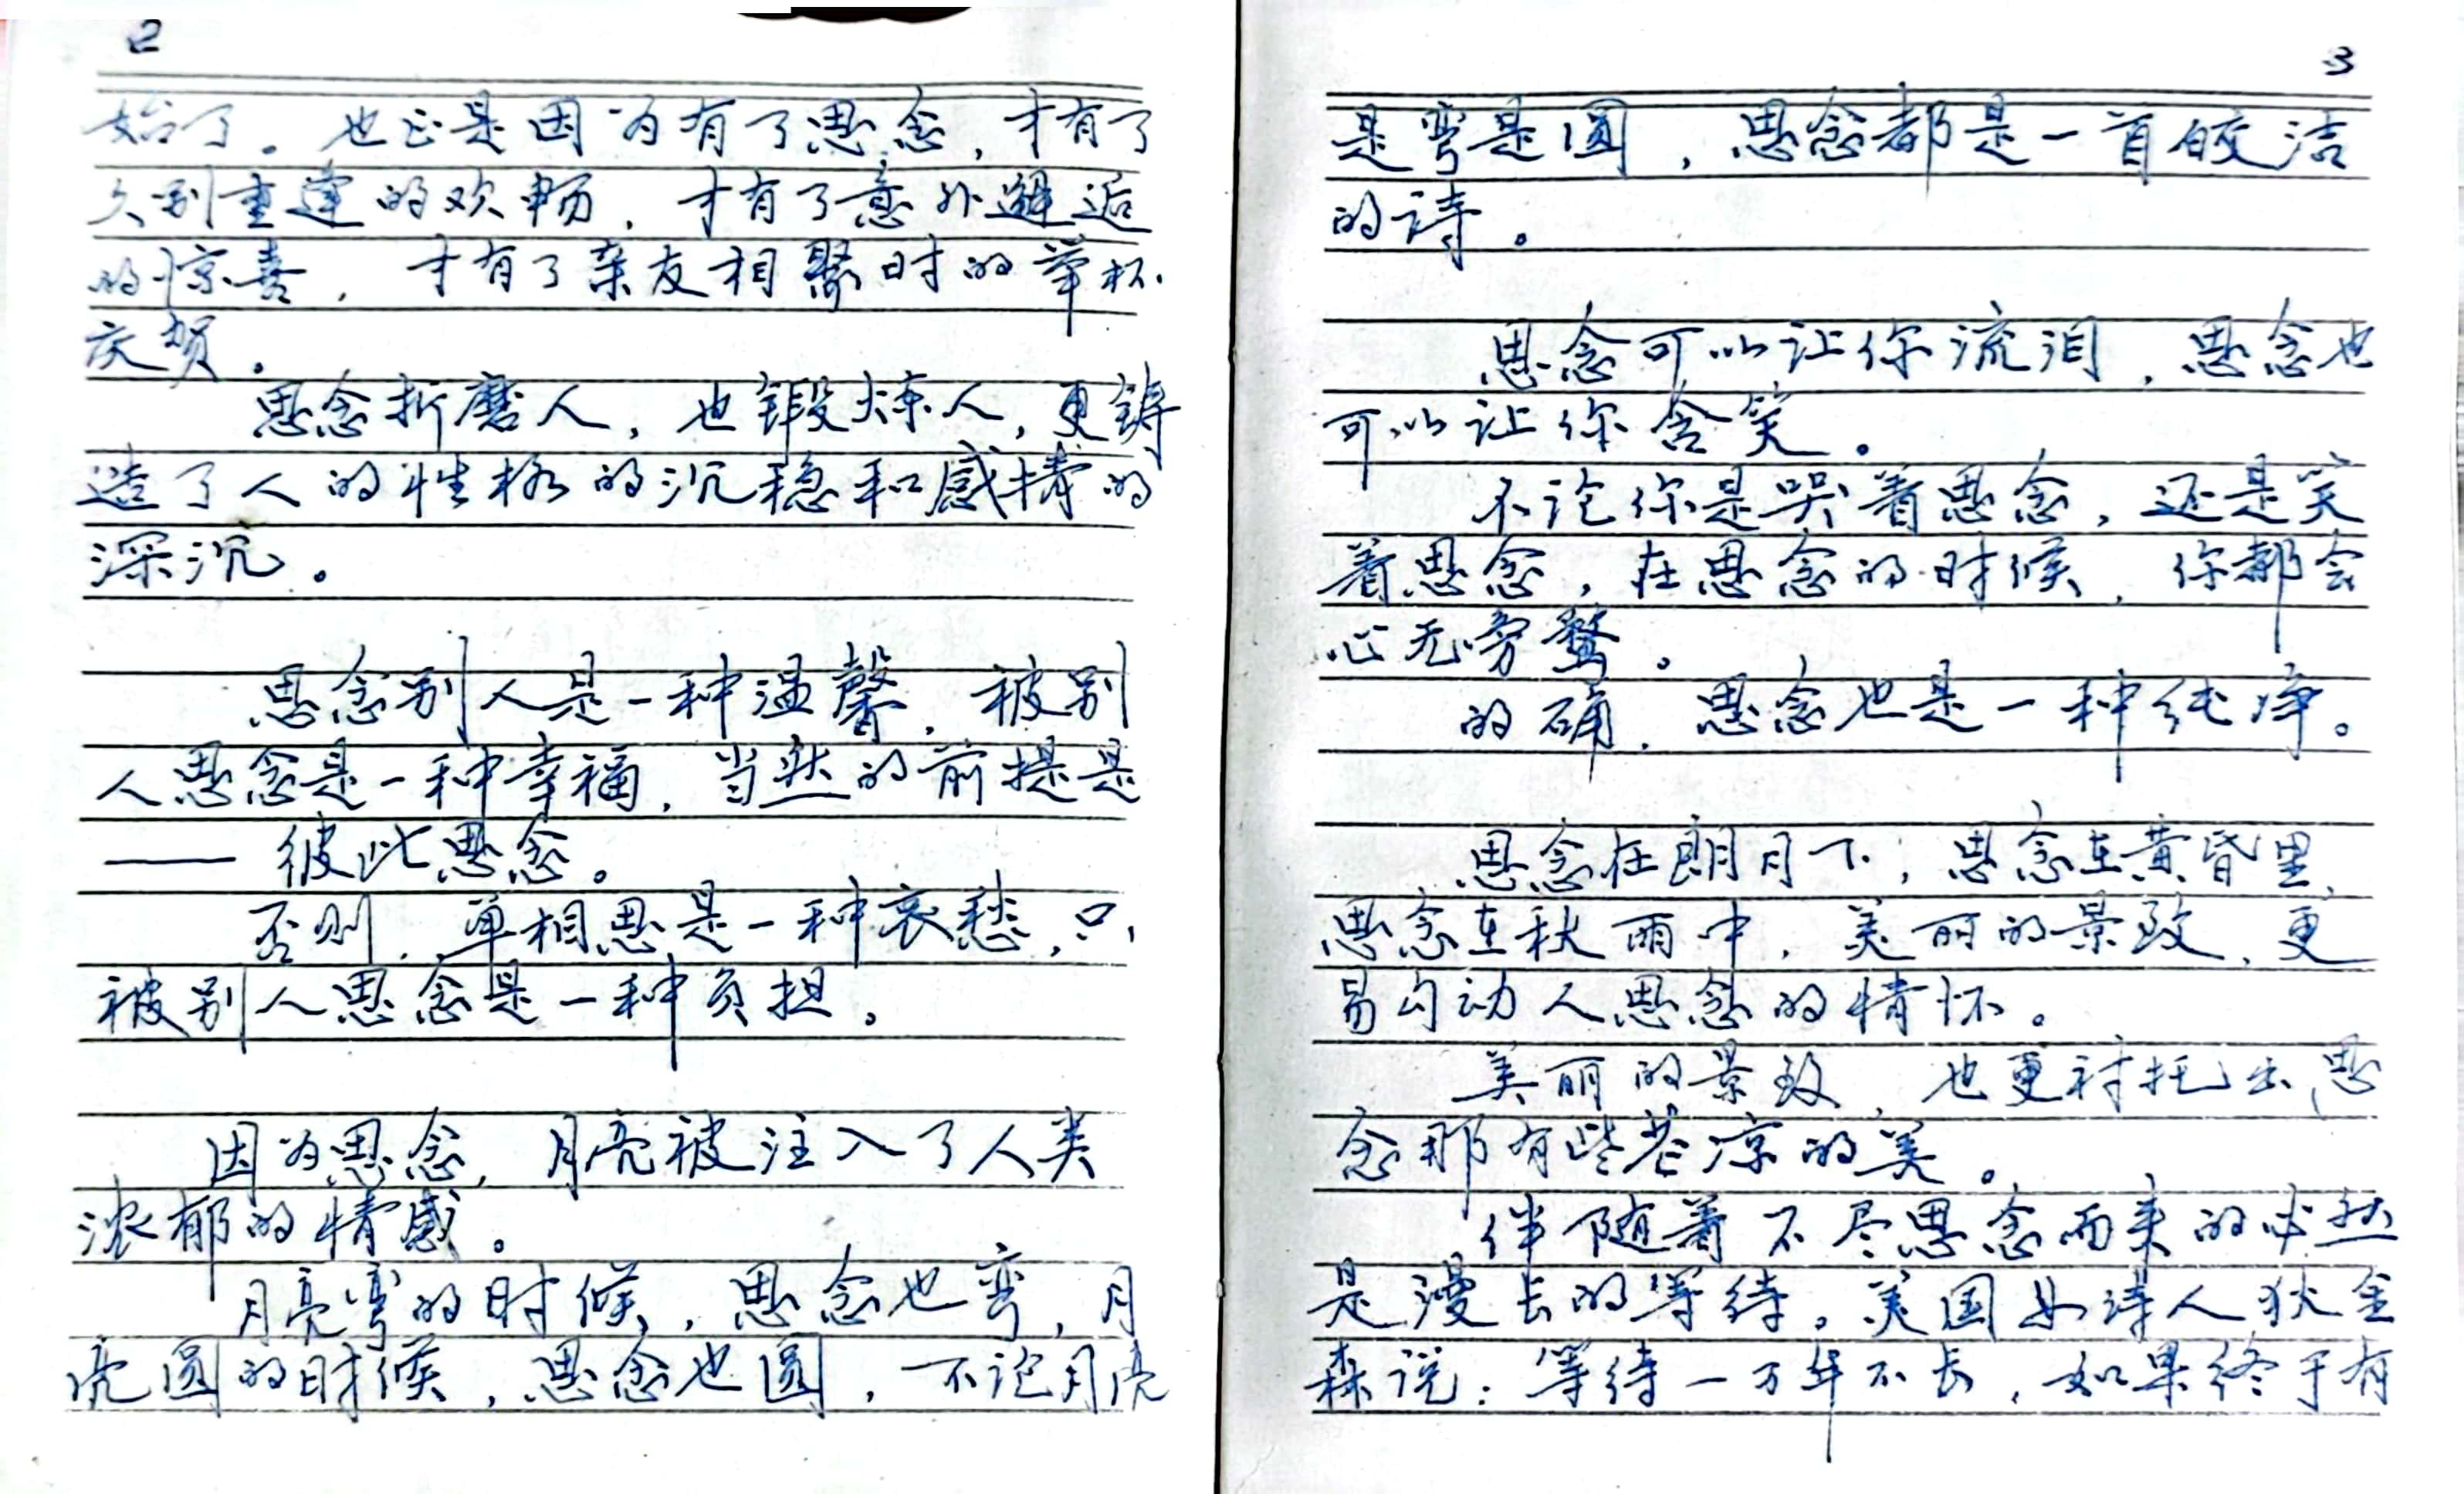 2
始了。也正是因为有了思念，才有了
久别重逢的欢畅，才有了意外邂逅
的惊喜，才有了亲友相聚时的举杯
庆贺。
思念折磨人，也锻炼人，更铸
造了人的性格的沉稳和感情的
深沉。
思念别人是一种温馨，被别
人思念是一种幸福，当然的前提是
——彼此思念。
否则，单相思是一种哀愁，只
被别人思念是一种负担。
因为思念，月亮被注入了人类
浓郁的情感。
月亮弯的时候，思念也弯，月
亮圆的时候，思念也圆，不论月亮
3
是弯是圆，思念都是一首皎洁
的诗。
思念可以让你流泪，思念也
可以让你含笑。
不论你是哭着思念，还是笑
着思念，在思念的时候，你都会
心无旁骛。
的确，思念也是一种纯净。
思念在朗月下，思念在黄昏里，
思念在秋雨中，美丽的景致，更
易勾动人思念的情怀。
美丽的景致，也更衬托出思
念那有些苍凉的美。
伴随着不尽思念而来的必然
是漫长的等待。美国女诗人狄金
森说：等待一万年不长，如果终于有